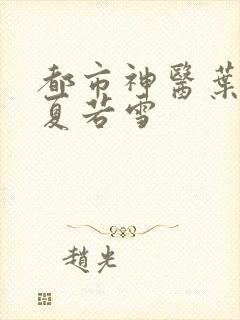 都市神醫葉
夏若雪
趙光